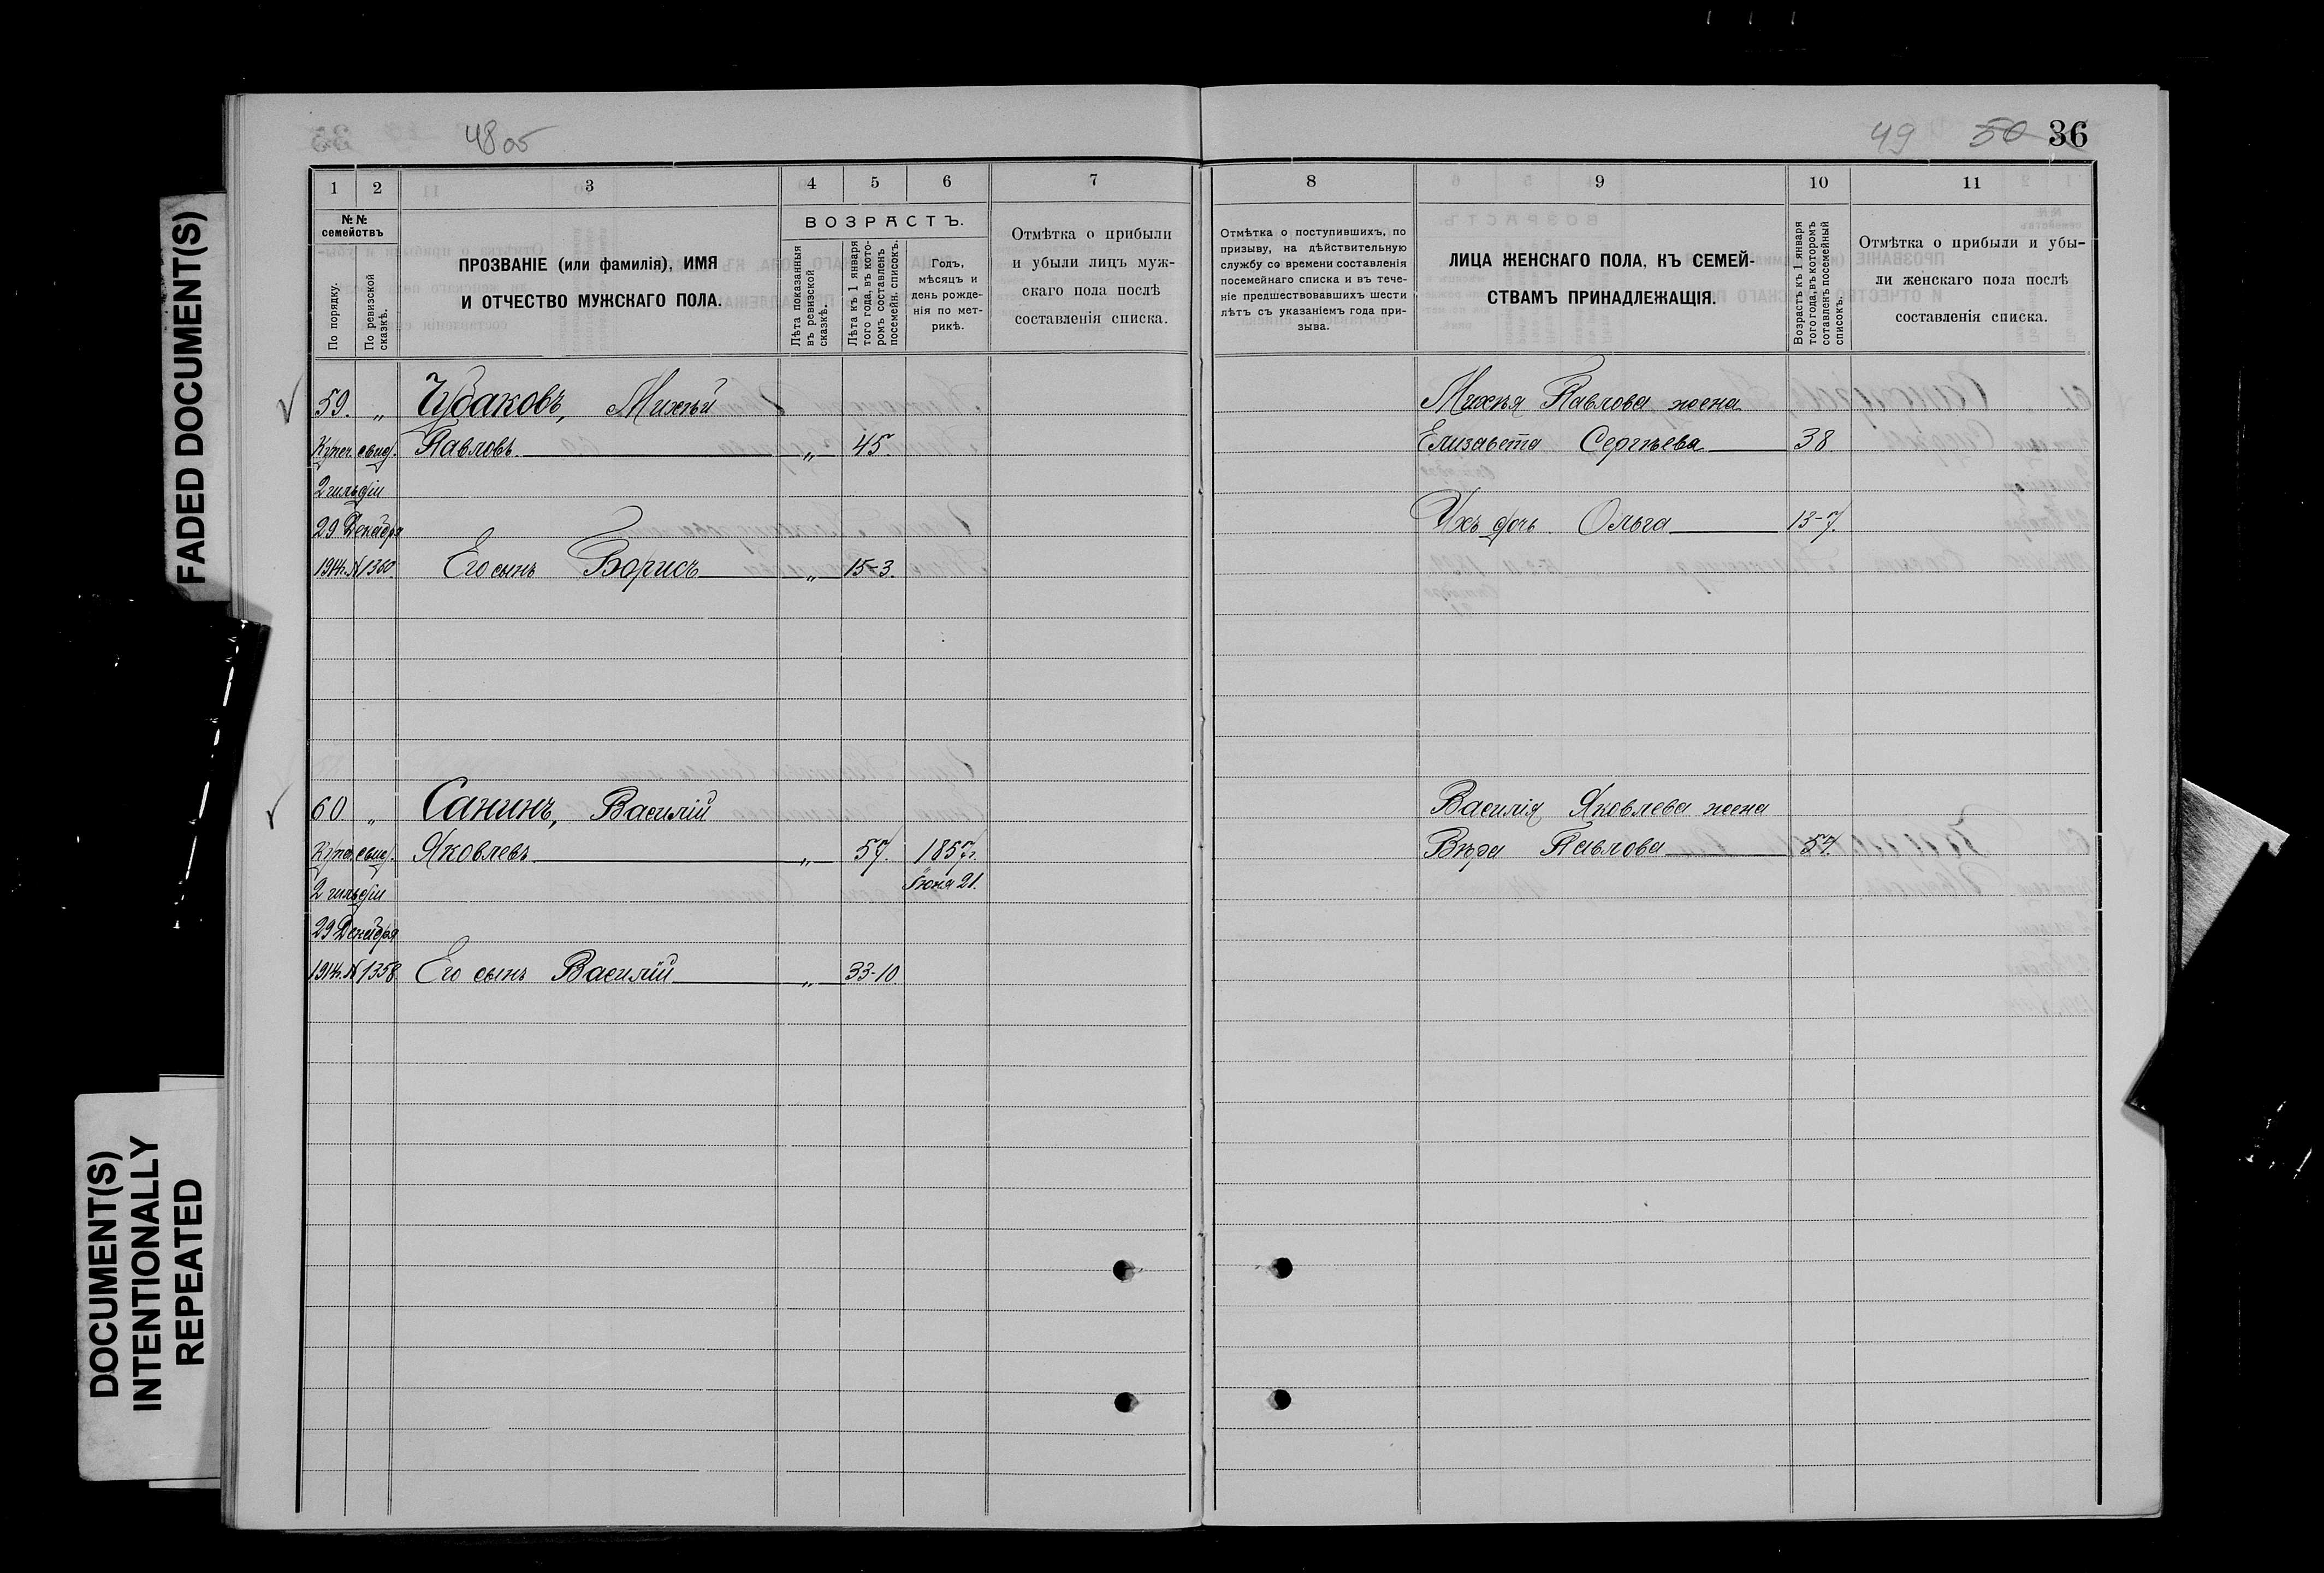 FADED DOCUMENT(S)
DOCUMENT(S)
INTENTIONALLY
REPEATED
48об
49 50 36
1 2 3 4 5 6 7
№№
семействъ
По порядку.
По ревизской
сказкѣ.
ПРОЗВАНІЕ (или фамилія), ИМЯ
И ОТЧЕСТВО МУЖСКАГО ПОЛА.
ВОЗРАСТЪ.
Лѣта показанныя
въ ревизской
сказкѣ.
Лѣта къ 1 января
того года, въ кото-
ромъ составленъ
посемейн. списокъ.
Годъ,
мѣсяцъ и
день рожде-
нія по мет-
рикѣ.
Отмѣтка о прибыли
и убыли лицъ муж-
скаго пола послѣ
составленія списка.
59. „ Чубаковъ, Михѣй
Купеч. свид. Павловъ „ 45
2 гильдіи
29 Декабря
1914г. №1350. Его сынъ Борисъ „ 15-3.
60 „ Санинъ, Василій
Купеч. свид. Яковлевъ „ 57. 1857г.
2 гильдіи Іюня 21.
29 Декабря
1914г. №1358. Его сынъ Василій „ 33-10.
8 9 10 11
Отмѣтка о поступившихъ, по
призыву, на дѣйствительную
службу со времени составленія
посемейнаго списка и въ тече-
ніе предшествовавшихъ шести
лѣтъ съ указаніемъ года при-
зыва.
ЛИЦА ЖЕНСКАГО ПОЛА, КЪ СЕМЕЙ-
СТВАМЪ ПРИНАДЛЕЖАЩІЯ.
Возрастъ къ 1 января
того года, въ которомъ
составленъ посемейный
списокъ.
Отмѣтка о прибыли и убы-
ли женскаго пола послѣ
составленія списка.
Михѣя Павлова жена
Елизавета Сергѣева 38
Ихъ дочь Ольга 13-7.
Василія Яковлева жена
Вѣра Павлова 57.